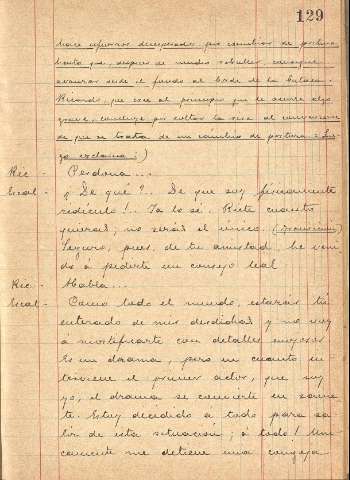 129
hace esfuerzos desesperados por cambiar de postura
hasta que, después de mucho rebullir, consigue
avanzar desde el fondo al borde de la butaca.
Ricardo, que cree al principio que le ocurre algo
grave, concluye por soltar la risa al convencerse
de que se trata de un cambio de postura. Lue-
go exclama:)
Ric - Perdona...
Leal - ¿De qué?.. De que soy físicamente
ridículo!.. Ya lo sé. Ríete cuanto
quieras; no serás el único. (Transición)
Seguro, pues, de tu amistad he veni-
do á pedirte un consejo leal
Ric. - Habla...
Leal - Como todo el mundo, estarás tú
enterado de mis desdichas y no voy
á mortificarte con detalles enojosos
Es un drama, pero en cuanto in-
terviene el primer actor, que soy
yo, el drama se convierte en saine-
te. Estoy decidido á todo para sa-
lir de esta situación; á todo! Uni-
camente me detiene una congoja